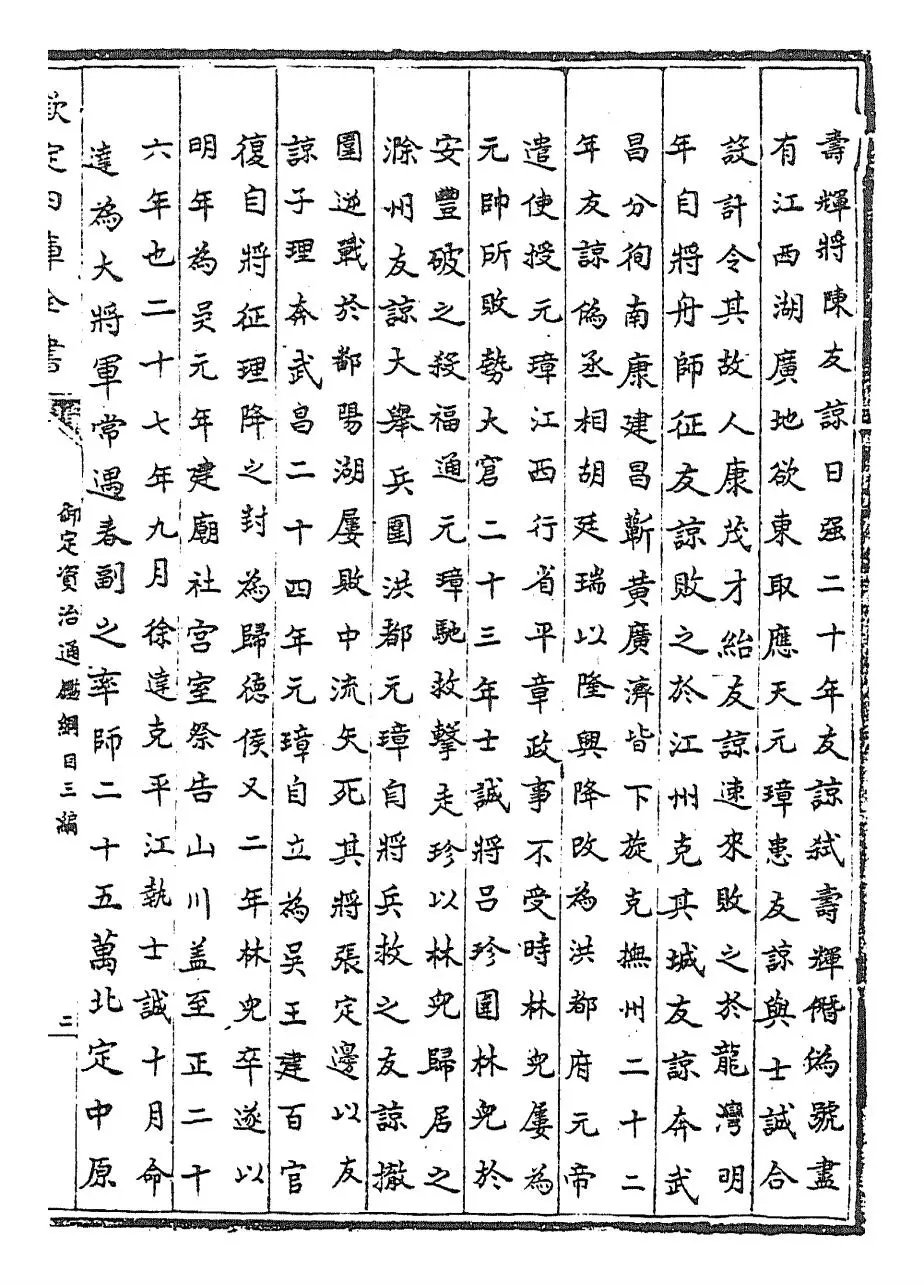 壽輝將陳友諒日强二十年友諒弑壽輝僭僞號盡
有江西湖廣地欲東取應天元璋患友諒與士誠合
設計令其故人康茂才紿友諒速來敗之於龍灣明
年自將舟師征友諒敗之於江州克其城友諒奔武
昌分徇南康建昌蘄黄廣濟皆下旋克撫州二十二
年友諒僞丞相胡廷瑞以隆興降改為洪都府元帝
遣使授元璋江西行省平章政事不受時林兒屢為
元帥所敗勢大窘二十三年士誠將吕珍圍林兒於
安豐破之殺福通元璋馳救擊走珍以林兒歸居之
滁州友諒大舉兵圍洪都元璋自將兵救之友諒撤
圍逆戰於鄱陽湖屢敗中流矢死其將張定邊以友
諒子理奔武昌二十四年元璋自立為吴王建百官
復自將征理降之封為歸徳侯又二年林兒卒遂以
明年為吴元年建廟社宫室祭告山川盖至正二十
六年也二十七年九月徐達克平江執士誠十月命
達為大將軍常遇春副之率師二十五萬北定中原
欽定四庫全書
御定資治通鑑綱目三編
二